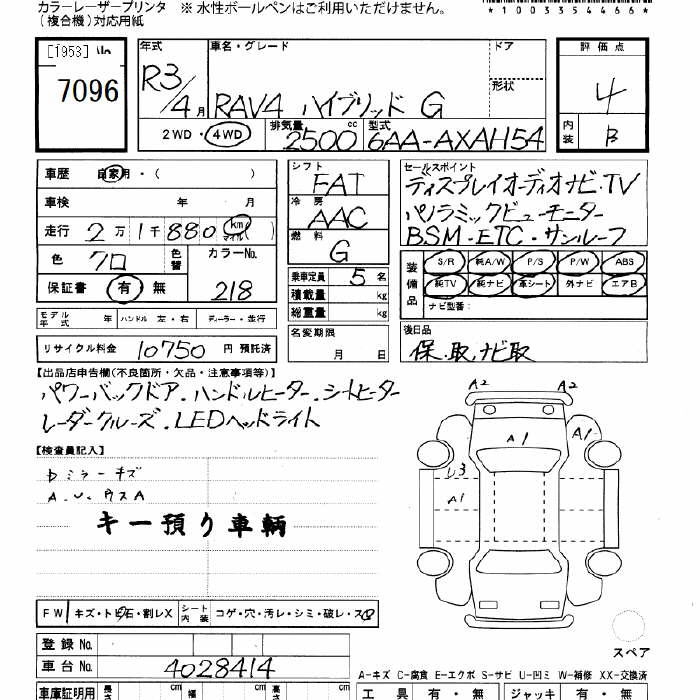 カラーレーザープリンタ ※ 水性ボールペンはご利用いただけません。
(複合機)対応用紙
*1003354466*
[1953]
7096
年式 R3/4月
車名・グレード RAV4 ハイブリッド G
ドア
形状
2WD・4WD
排気量 2500 cc
型式 6AA-AXAH54
評価点 4
内装 B
車歴 自家用・( )
車検 年 月
走行 2万1千880 km マイル
色 クロ 色替 カラーNo. 218
保証書 有 無
モデル年式 年 ハンドル 左・右 ディーラー・並行
リサイクル料金 10750 円 預託済
シフト FAT
冷房 AAC
燃料 G
乗車定員 5 名
積載量 kg
総重量 kg
名変期限
月 日
セールスポイント
ディスプレイオーディオナビ・TV
パノラミックビューモニター
BSM・ETC・サンルーフ
装備品
S/R 純A/W P/S P/W ABS
純TV 純ナビ 革シート 外ナビ エアB
ナビ型番:
後日品
保・取,ナビ取
【出品店申告欄(不良箇所・欠品・注意事項等)】
パワーバックドア.ハンドルヒーター.シートヒーター
レーダークルーズ.LEDヘッドライト
【検査員記入】
ミラーキズ
キー預り車輌
A2 A2
A1 A1
A1
FW キズ・トビ石・割レX シート内装 コゲ・穴・汚レ・シミ・破レ・スレ
登録 No.
車台 No. 4028414
スペア
A-キズ C-腐食 E-エクボ S-サビ U-凹ミ W-補修 XX-交換済
車庫証明用 長さ cm 幅 cm 高さ cm
工具 有・無 ジャッキ 有・無